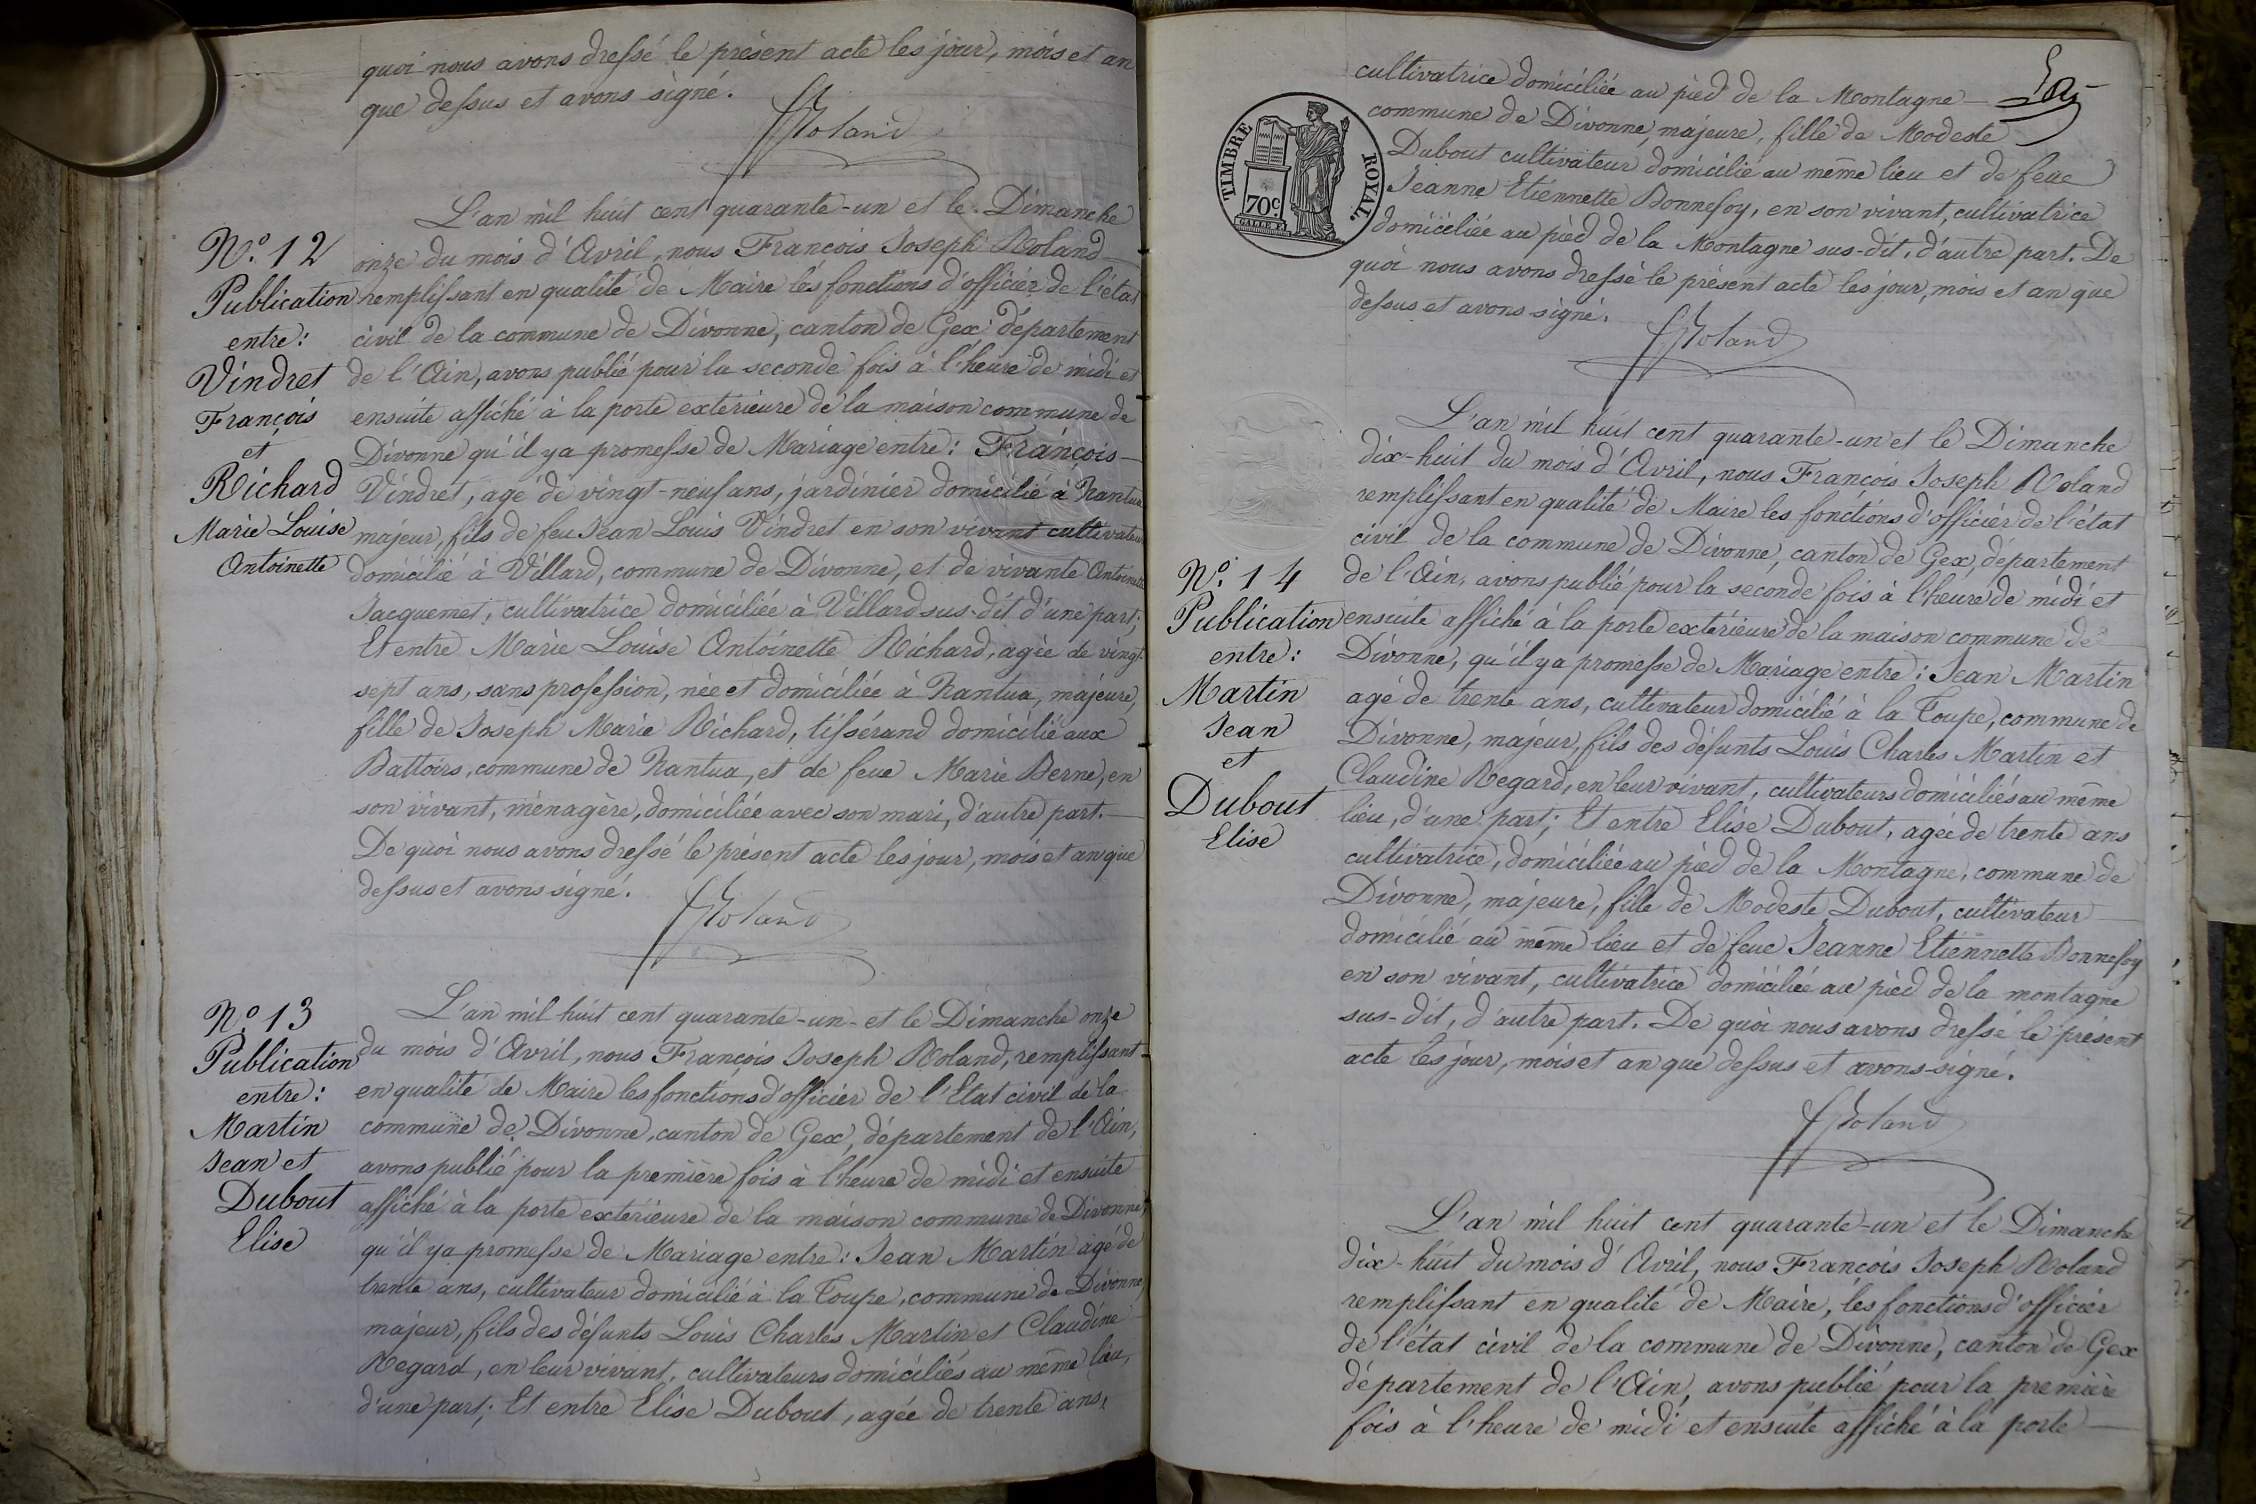 quoi nous avons dressé le présent acte les jour, mois et an
que dessus et avons signé.
FRoland
N.° 12
Publication
entre :
Vindret
François
et
Richard
Marie Louise
Antoinette
L'an mil huit cent quarante-un et le Dimanche
onze du mois d'Avril, nous François Joseph Roland
remplissant en qualité de Maire les fonctions d'officier de l'état
civil de la commune de Divonne, canton de Gex, département
de l'Ain, avons publié pour la seconde fois à l'heure de midi et
ensuite affiché à la porte extérieure de la maison commune de
Divonne qu'il y a promesse de Mariage entre : François
Vindret, agé de vingt-neuf ans, jardinier domicilié à Nantua
majeur, fils de feu Jean Louis Vindret en son vivant cultivateur
domicilié à Villard, commune de Divonne, et de vivante Antoinette
Jacquemet, cultivatrice domiciliée à Villard sus-dit d'une part;
Et entre Marie Louise Antoinette Richard, agée de vingt-
sept ans, sans profession, née et domiciliée à Nantua, majeure,
fille de Joseph Marie Richard, tissérand domicilié aux
Battoirs, commune de Nantua, et de feue Marie Berne, en
son vivant, ménagère, domiciliée avec son mari, d'autre part.
De quoi nous avons dressé le présent acte les jour, mois et an que
dessus et avons signé.
FRoland
N.° 13
Publication
entre :
Martin
Jean et
Dubout
Elise
L'an mil huit cent quarante-un et le Dimanche onze
du mois d'Avril, nous François Joseph Roland, remplissant
en qualité de Maire les fonctions d'officier de l'Etat civil de la
commune de Divonne, canton de Gex, département de l'Ain,
avons publié pour la première fois à l'heure de midi et ensuite
affiché à la porte extérieure de la maison commune de Divonne,
qu'il y a promesse de Mariage entre : Jean Martin agé de
trente ans, cultivateur domicilié à la Toupe, commune de Divonne,
majeur, fils des défunts Louis Charles Martin et Claudine
Regard, en leur vivant, cultivateurs domiciliés au même lieu,
d'une part; Et entre Elise Dubout, agée de trente ans,
cultivatrice domiciliée au pied de la Montagne
commune de Divonne, majeure, fille de Modeste
Dubout cultivateur domicilié au même lieu et de feue
Jeanne Etiennette Bonnefoy, en son vivant, cultivatrice
domiciliée au pied de la Montagne sus-dit, d'autre part. De
quoi nous avons dressé le présent acte les jour, mois et an que
dessus et avons signé.
TIMBRE ROYAL
70c.
FRoland
N.° 14
Publication
entre :
Martin
Jean
et
Dubout
Elise
L'an mil huit cent quarante-un et le Dimanche
dix-huit du mois d'Avril, nous François Joseph Roland
remplissant en qualité de Maire les fonctions d'officier de l'état
civil de la commune de Divonne, canton de Gex, département
de l'Ain, avons publié pour la seconde fois à l'heure de midi et
ensuite affiché à la porte extérieure de la maison commune de
Divonne, qu'il y a promesse de Mariage entre : Jean Martin
agé de trente ans, cultivateur domicilié à la Toupe, commune de
Divonne, majeur, fils des défunts Louis Charles Martin et
Claudine Regard, en leur vivant, cultivateurs domiciliés au même
lieu, d'une part; Et entre Elise Dubout, agée de trente ans
cultivatrice, domiciliée au pied de la Montagne, commune de
Divonne, majeure, fille de Modeste Dubout, cultivateur
domicilié au même lieu et de feue Jeanne Etiennette Bonnefoy
en son vivant, cultivatrice domiciliée au pied de la montagne
sus-dit, d'autre part. De quoi nous avons dressé le présent
acte les jour, mois et an que dessus et avons signé.
FRoland
L'an mil huit cent quarante-un et le Dimanche
dix-huit du mois d'Avril, nous François Joseph Roland
remplissant en qualité de Maire, les fonctions d'officier
de l'état civil de la commune de Divonne, canton de Gex
département de l'Ain, avons publié pour la première
fois à l'heure de midi et ensuite affiché à la porte